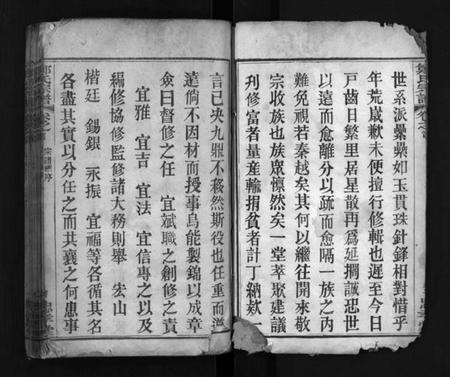 世系派纍纍如玉貫珠針鋒相對惜乎
年荒歲歉未便擅行修輯也遲至今日
戸齒日繁里居星散再爲延擱誠恐世
以遠而愈離分以疏而愈隔一族之內
難免視若秦越矣其何以繼往開來敬
宗收族也族眾懍然矣一堂萃聚建議
刋修富者量產輸捐貧者計丁納欵一
言已央九鼎不移然斯役也任重而道
遠倘不因材而授事烏能製錦以成章
僉曰督修之任 宜斌職之創修之責
宜雅 宜吉 宜法 宜信專之以及
編修協修監修諸大務則舉 宏山
楷廷 錫銀 永振 宜福等各循其名
各盡其實以分任之而共襄之何患事
氏宗譜 卷首